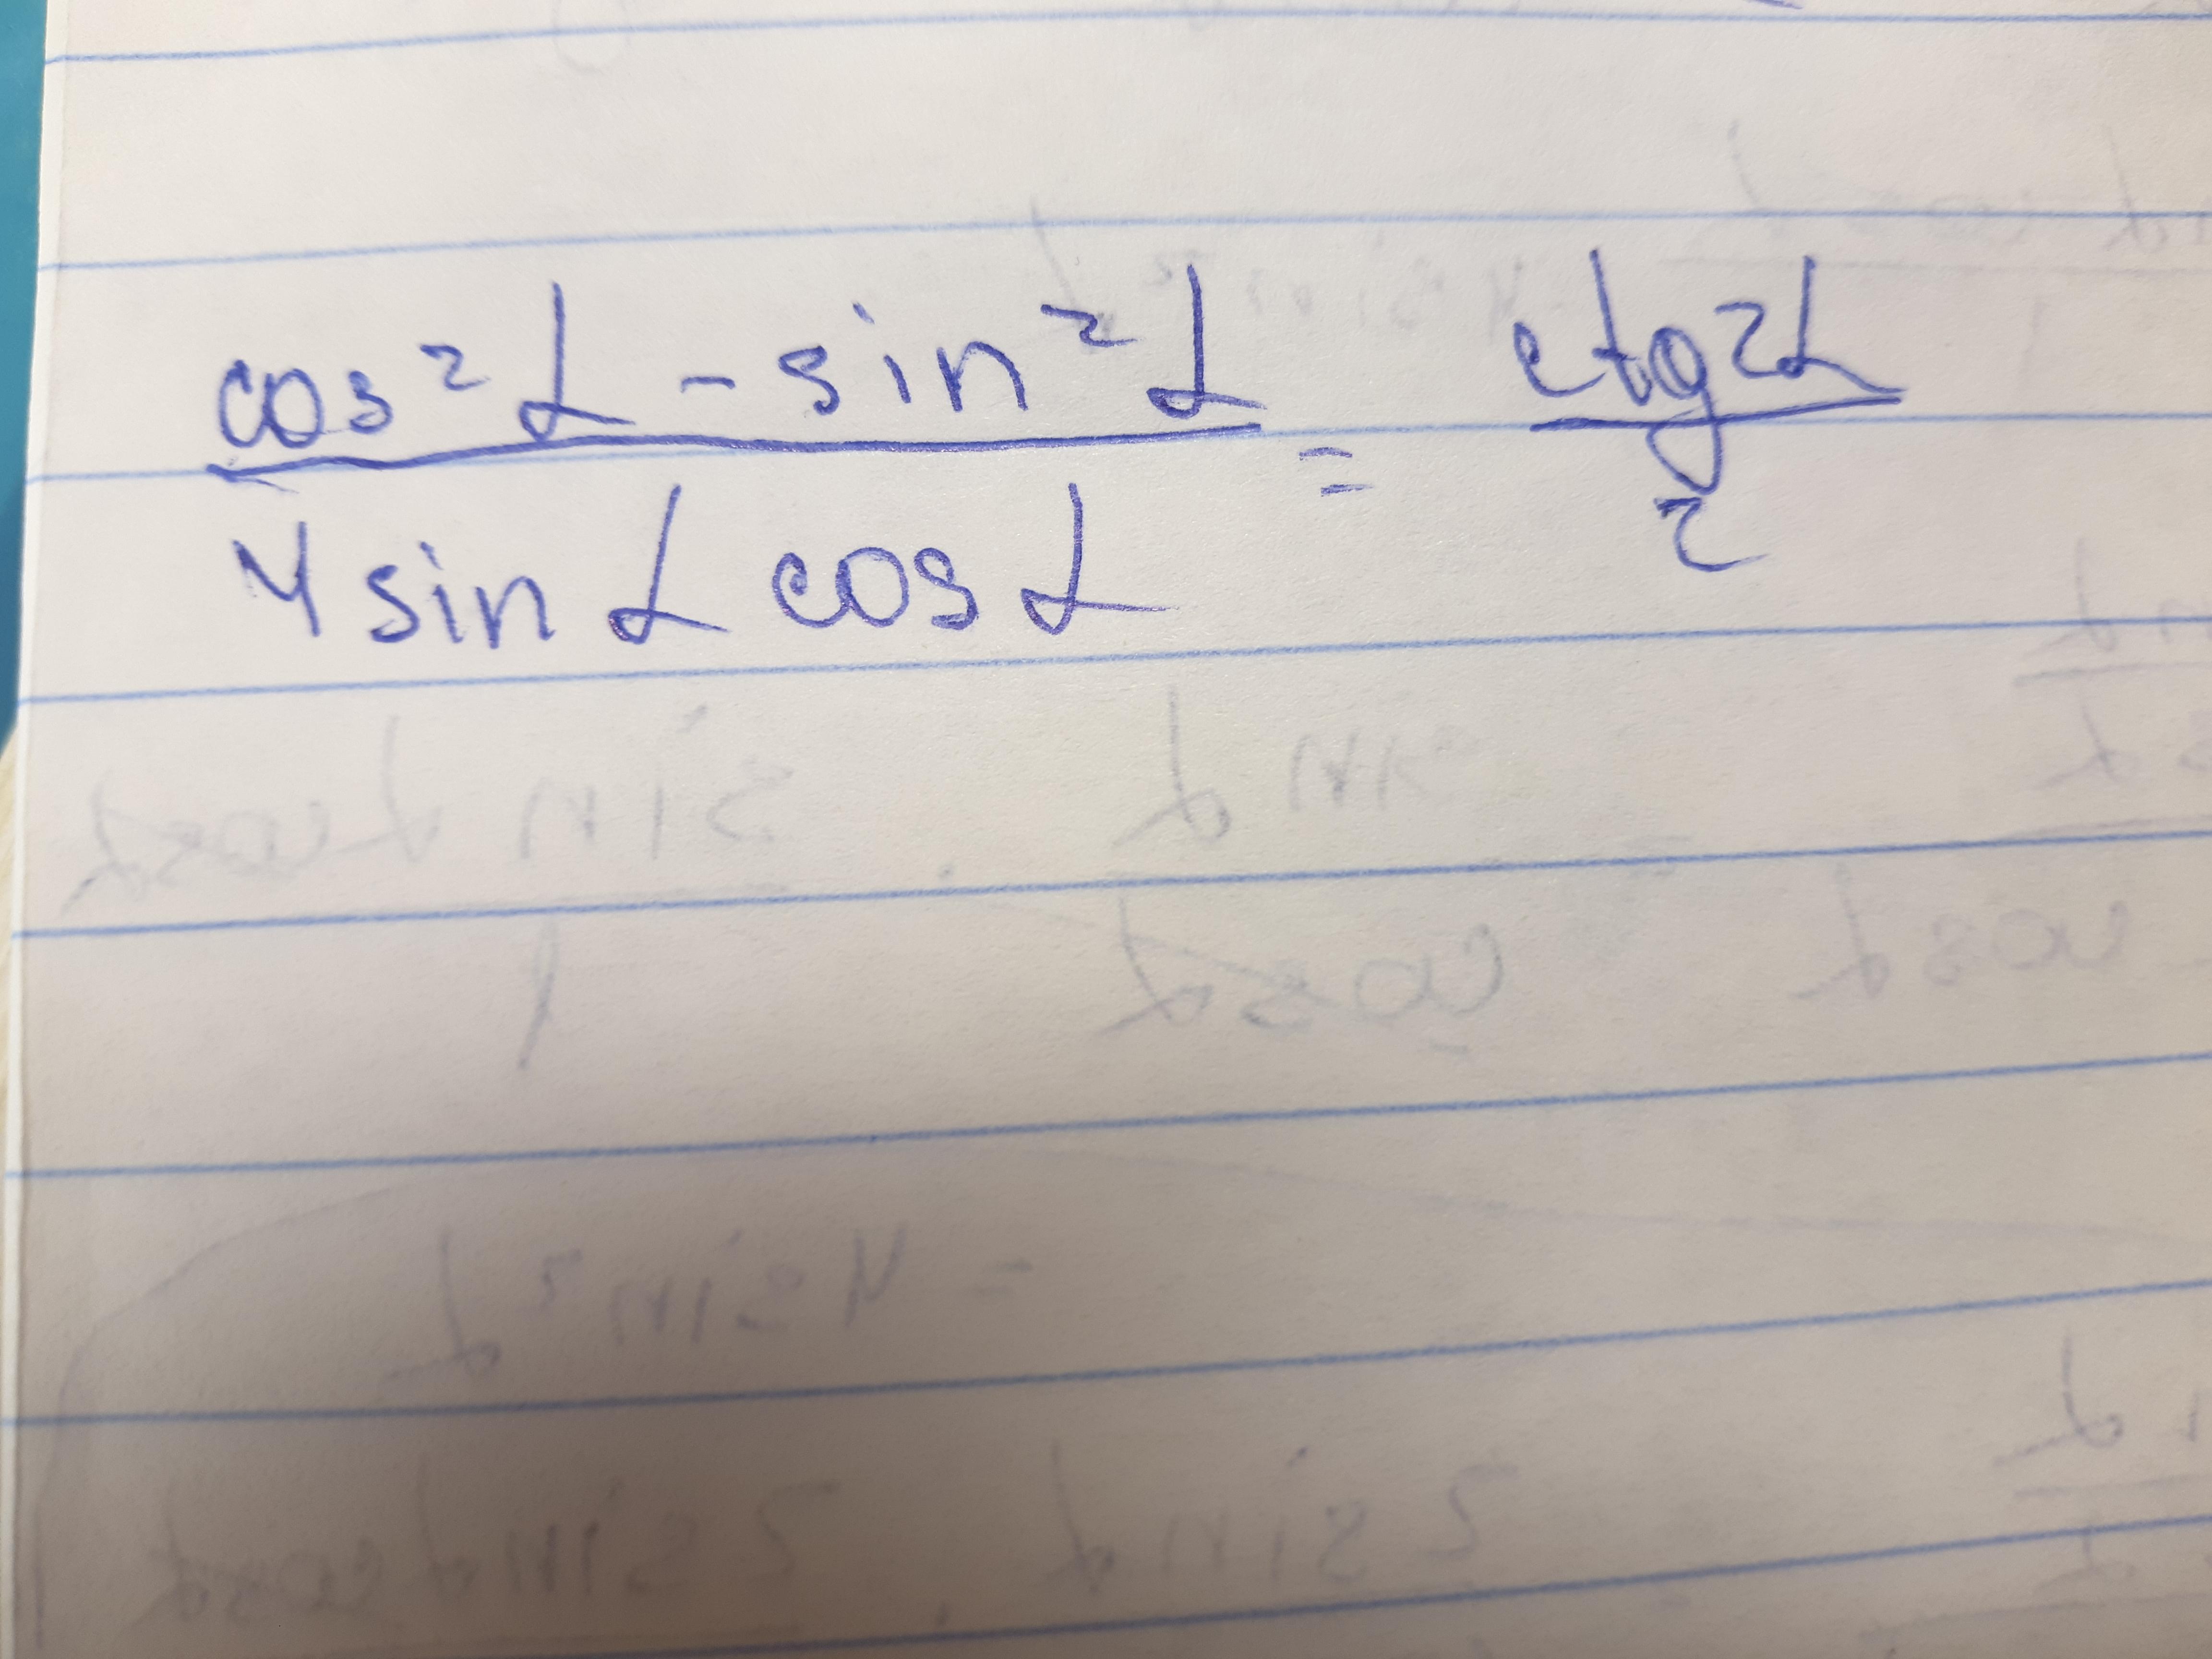 cos²α - sin²α / 4 sin α cos α = ctg 2α / 2